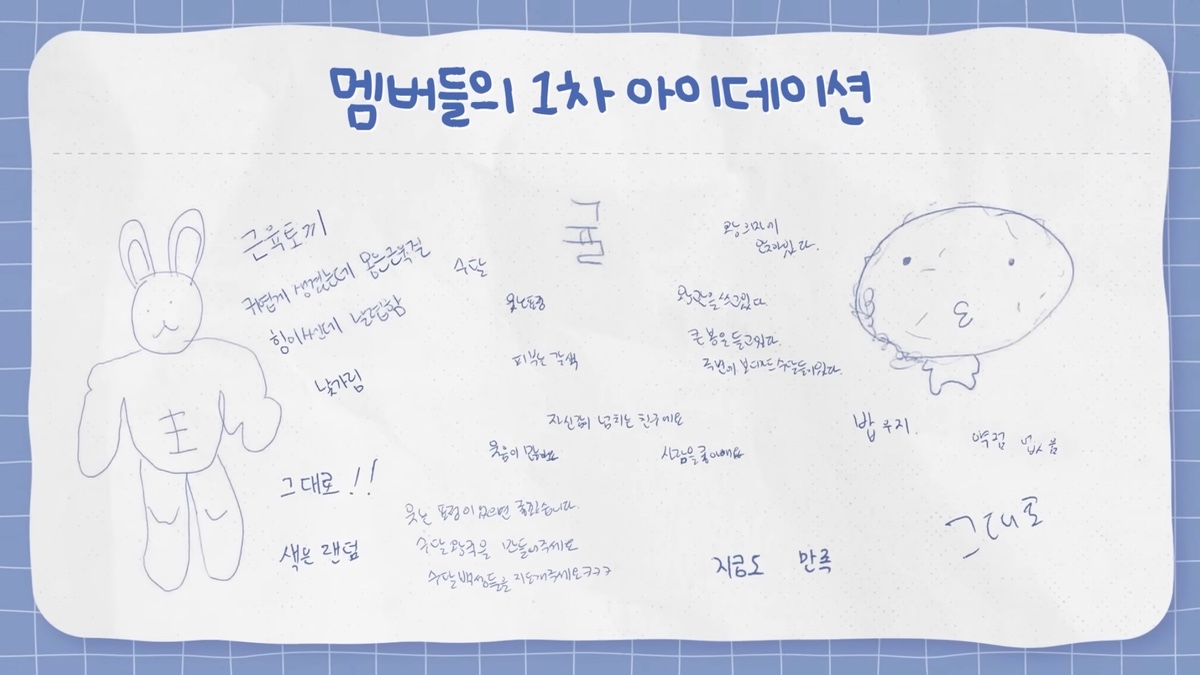 멤버들의 1차 아이데이션
근육토끼
귀엽게 생겼는데 몸은근육질
힘이쎈데 날렵함
낯가림
그대로 !!
색은 랜덤
수달
웃는표정
피부는 갈색
왕의자에
앉아있다.
왕관을 쓰고있다
큰봉을 들고있다.
주변에 보디가드 수달들이있다.
자신감이 넘치는 친구에요
웃음이 많아요
사람을좋아해요
웃는 표정이 있으면 좋겠습니다.
수달왕국을 만들어주세요
수달백성들을 지도해주세요ㅋㅋㅋ
지금도 만족
밥
약점 없음
그대로